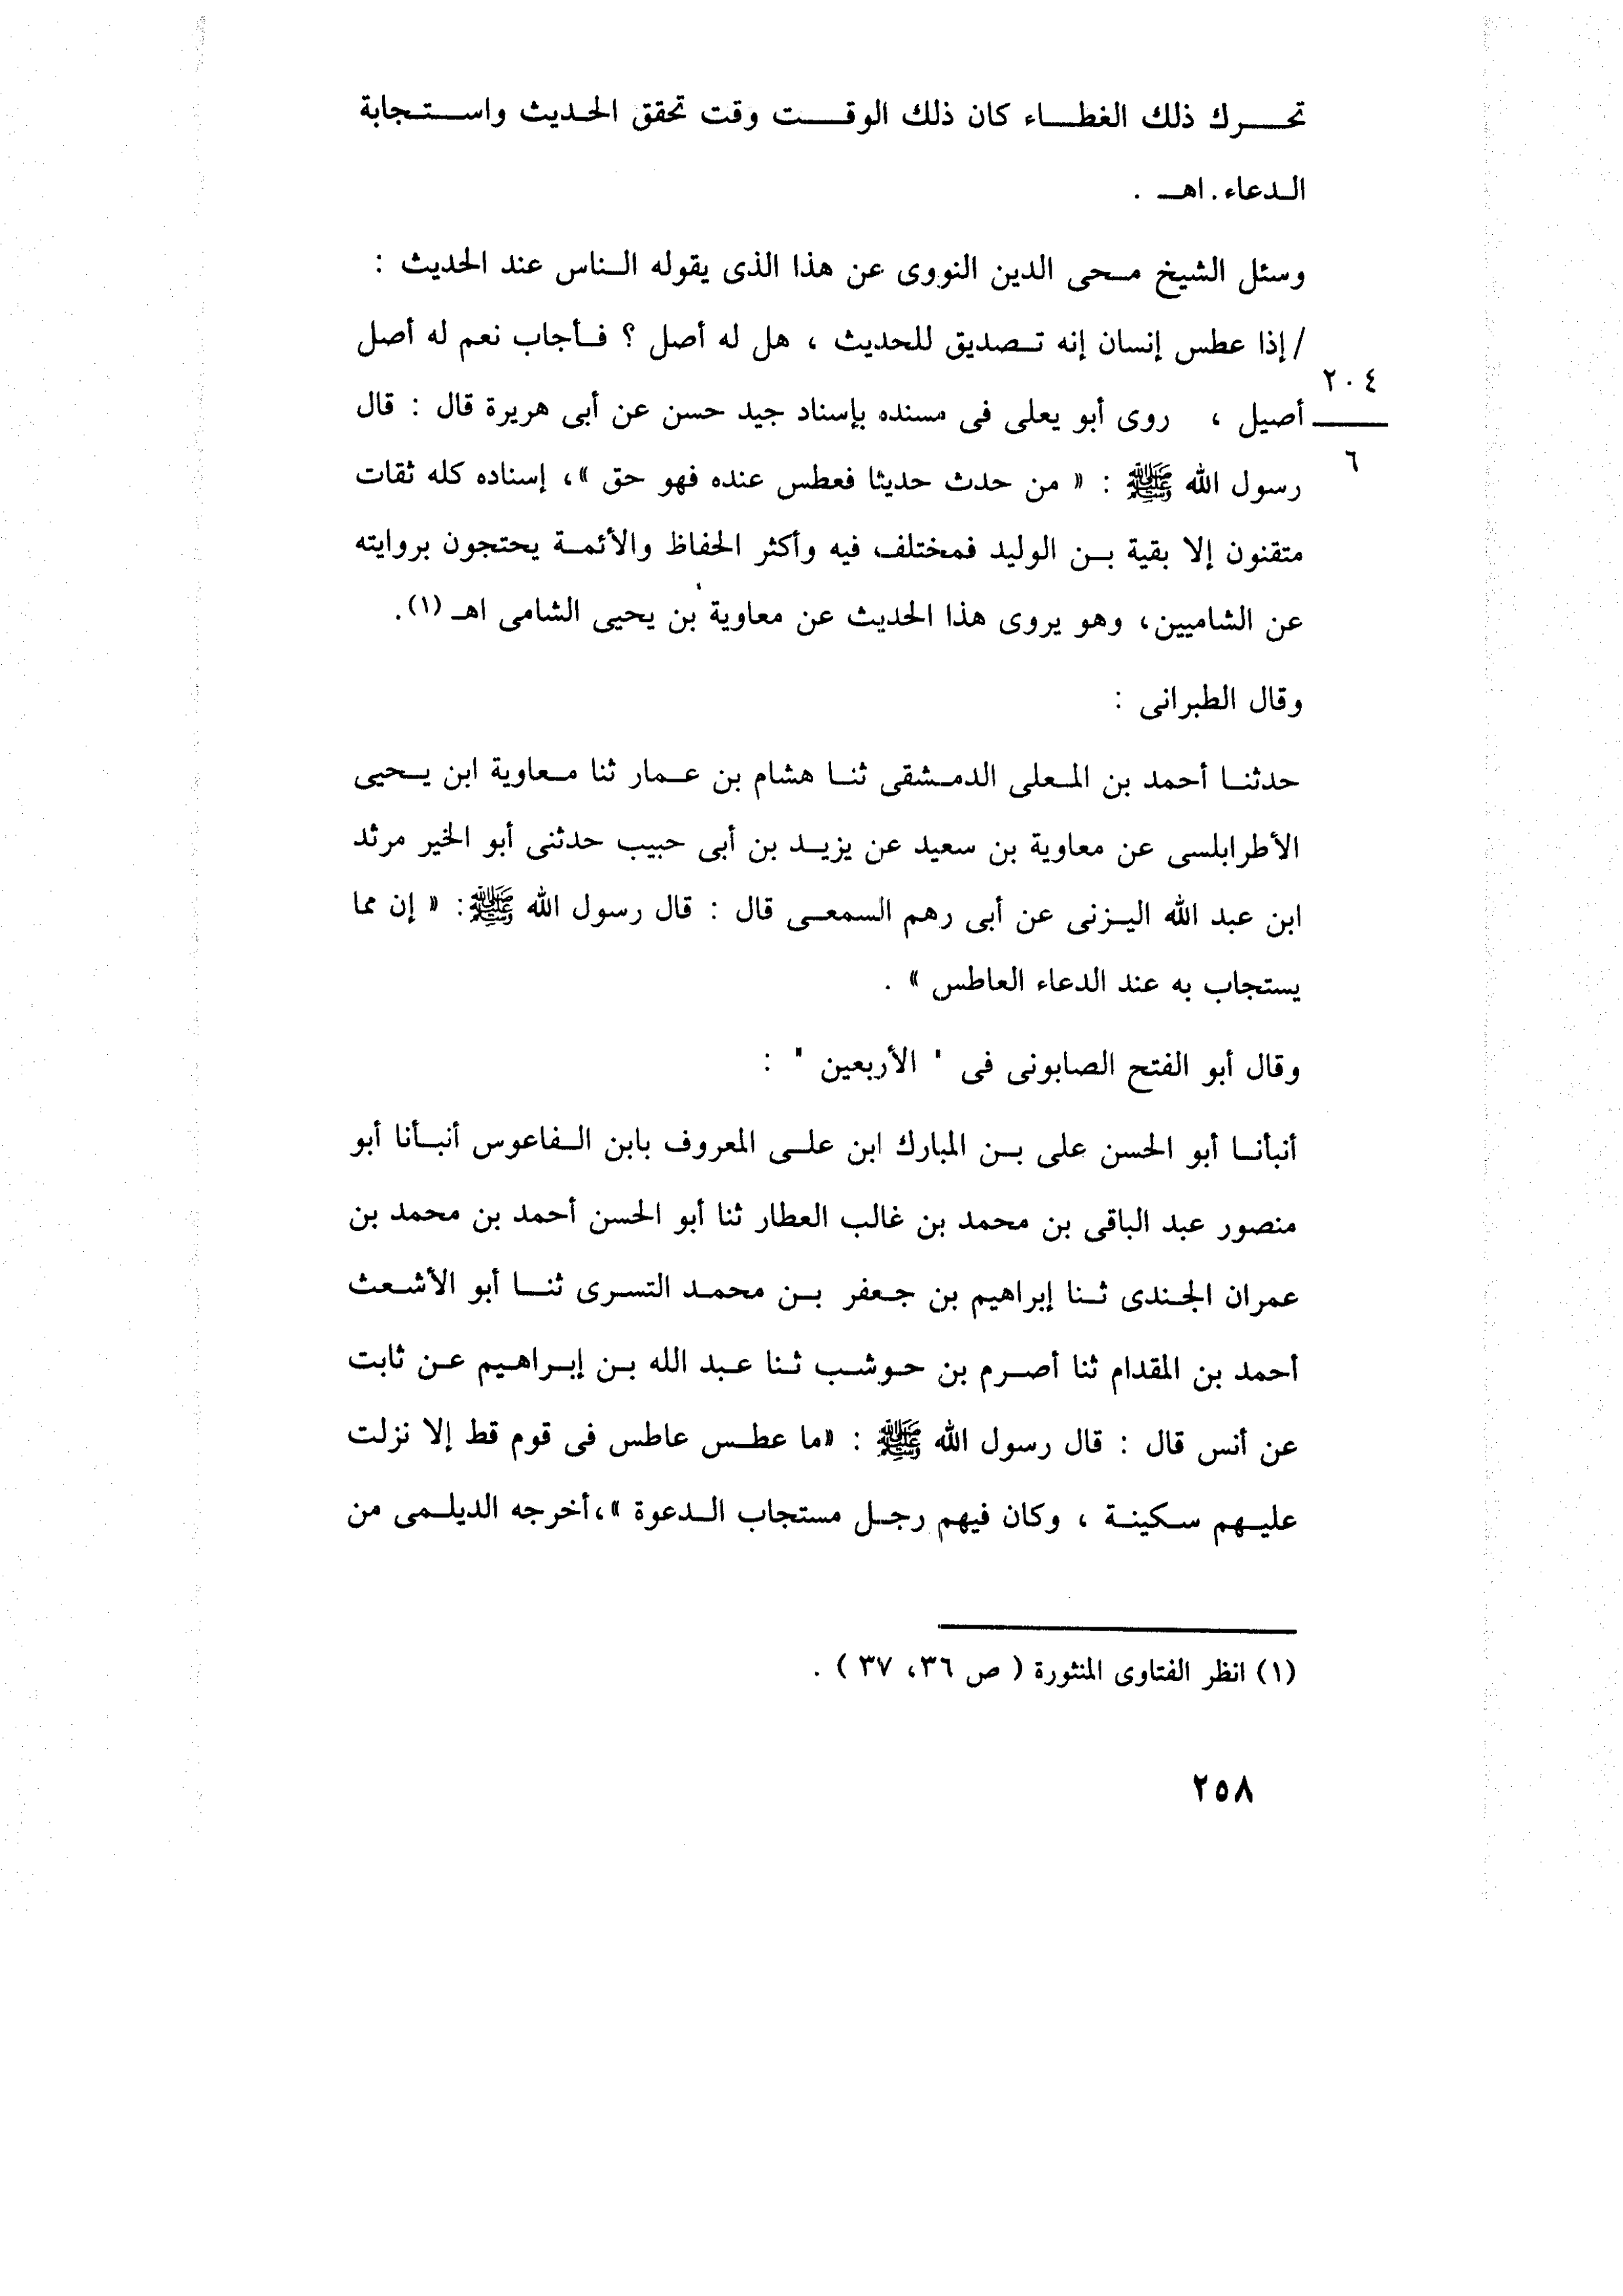 تحرك ذلك الغطاء كان ذلك الوقت وقت تحقق الحديث واستجابة
الدعاء. اهـ .
وسئل الشيخ محى الدين النووى عن هذا الذى يقوله الناس عند الحديث :
/ إذا عطس إنسان إنه تصديق للحديث ، هل له أصل ؟ فأجاب نعم له أصل
٢٠٤
أصيل ، روى أبو يعلى فى مسنده بإسناد جيد حسن عن أبى هريرة قال : قال
٦
رسول الله ﷺ : « من حدث حديثا فعطس عنده فهو حق »، إسناده كله ثقات
متقنون إلا بقية بن الوليد فمختلف فيه وأكثر الحفاظ والأئمة يحتجون بروايته
عن الشاميين، وهو يروى هذا الحديث عن معاوية بن يحيى الشامى اهـ (١).
وقال الطبرانى :
حدثنا أحمد بن المعلى الدمشقى ثنا هشام بن عمار ثنا معاوية ابن يحيى
الأطرابلسى عن معاوية بن سعيد عن يزيد بن أبى حبيب حدثنى أبو الخير مرثد
ابن عبد الله اليزنى عن أبى رهم السمعى قال : قال رسول الله ﷺ: « إن مما
يستجاب به عند الدعاء العاطس » .
وقال أبو الفتح الصابونى فى " الأربعين " :
أنبأنا أبو الحسن على بن المبارك ابن على المعروف بابن الفاعوس أنبأنا أبو
منصور عبد الباقى بن محمد بن غالب العطار ثنا أبو الحسن أحمد بن محمد بن
عمران الجندى ثنا إبراهيم بن جعفر بن محمد التسرى ثنا أبو الأشعث
أحمد بن المقدام ثنا أصرم بن حوشب ثنا عبد الله بن إبراهيم عن ثابت
عن أنس قال : قال رسول الله ﷺ : «ما عطس عاطس فى قوم قط إلا نزلت
عليهم سكينة ، وكان فيهم رجل مستجاب الدعوة »،أخرجه الديلمى من
(١) انظر الفتاوى المنثورة ( ص ٣٦، ٣٧ ) .
٢٥٨